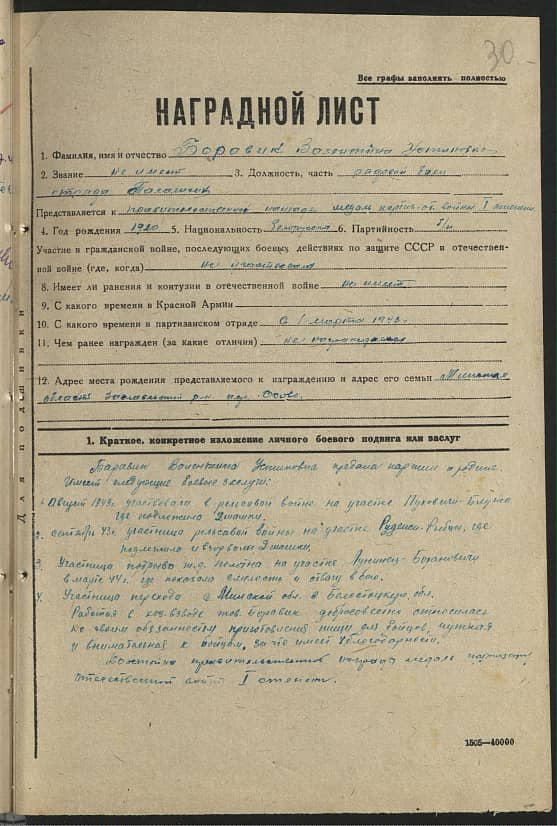 30
Все графы заполнять полностью
НАГРАДНОЙ ЛИСТ
1. Фамилия, имя и отчество Боровик Валентина Устиновна
2. Звание не имеет 3. Должность, часть рядовой
отряда
Представляется к правительственной награде медаль партиз. от. войны I степени
4. Год рождения 1920 5. Национальность белоруска 6. Партийность б/п
Участие в гражданской войне, последующих боевых действиях по защите СССР в отечествен-
ной войне (где, когда) не участвовала
8. Имеет ли ранения и контузии в отечественной войне не имеет
9. С какого времени в Красной Армии
10. С какого времени в партизанском отряде С 1 марта 1943г.
11. Чем ранее награжден (за какие отличия) не награждался
12. Адрес места рождения представляемого к награждению и адрес его семьи Минская
область Заславльский р-н дер.
Для подшивки
1. Краткое, конкретное изложение личного боевого подвига или заслуг
Боровик Валентина Устиновна предана партии и родине.
Имеет следующие боевые заслуги:
1. Август 1943г. участвовала в рельсовой войне на участке Пуховичи-
где подложила 2 шашки.
2. сентябрь 43г. участница рельсовой войны на участке Руденск- где
подложила и взорвала 2 шашки.
3. Участница подрыва ж.д. полотна на участке Лунинец-Барановичи
в марте 44г. где показала смелость и отвагу в бою.
4. Участница перехода с Минской обл. в Белостокскую обл.
Работая в хоз-взводе тов. Боровик добросовестно относилась
ко своим обязанностям приготовления пищи для бойцов, чуткая
и внимательная к бойцам, за что имеет благодарности.
Достойна правительственной награды медаль партизану
отечественной войны I степени.
1505—40000